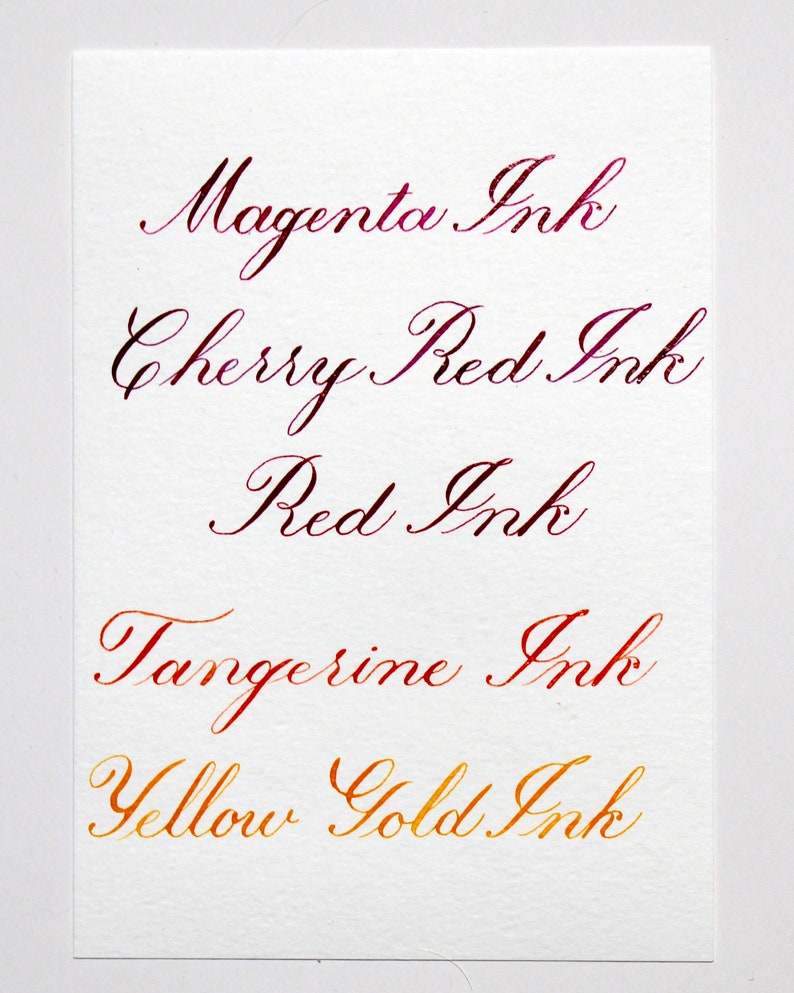 Magenta Ink
Cherry Red Ink
Red Ink
Tangerine Ink
Yellow Gold Ink